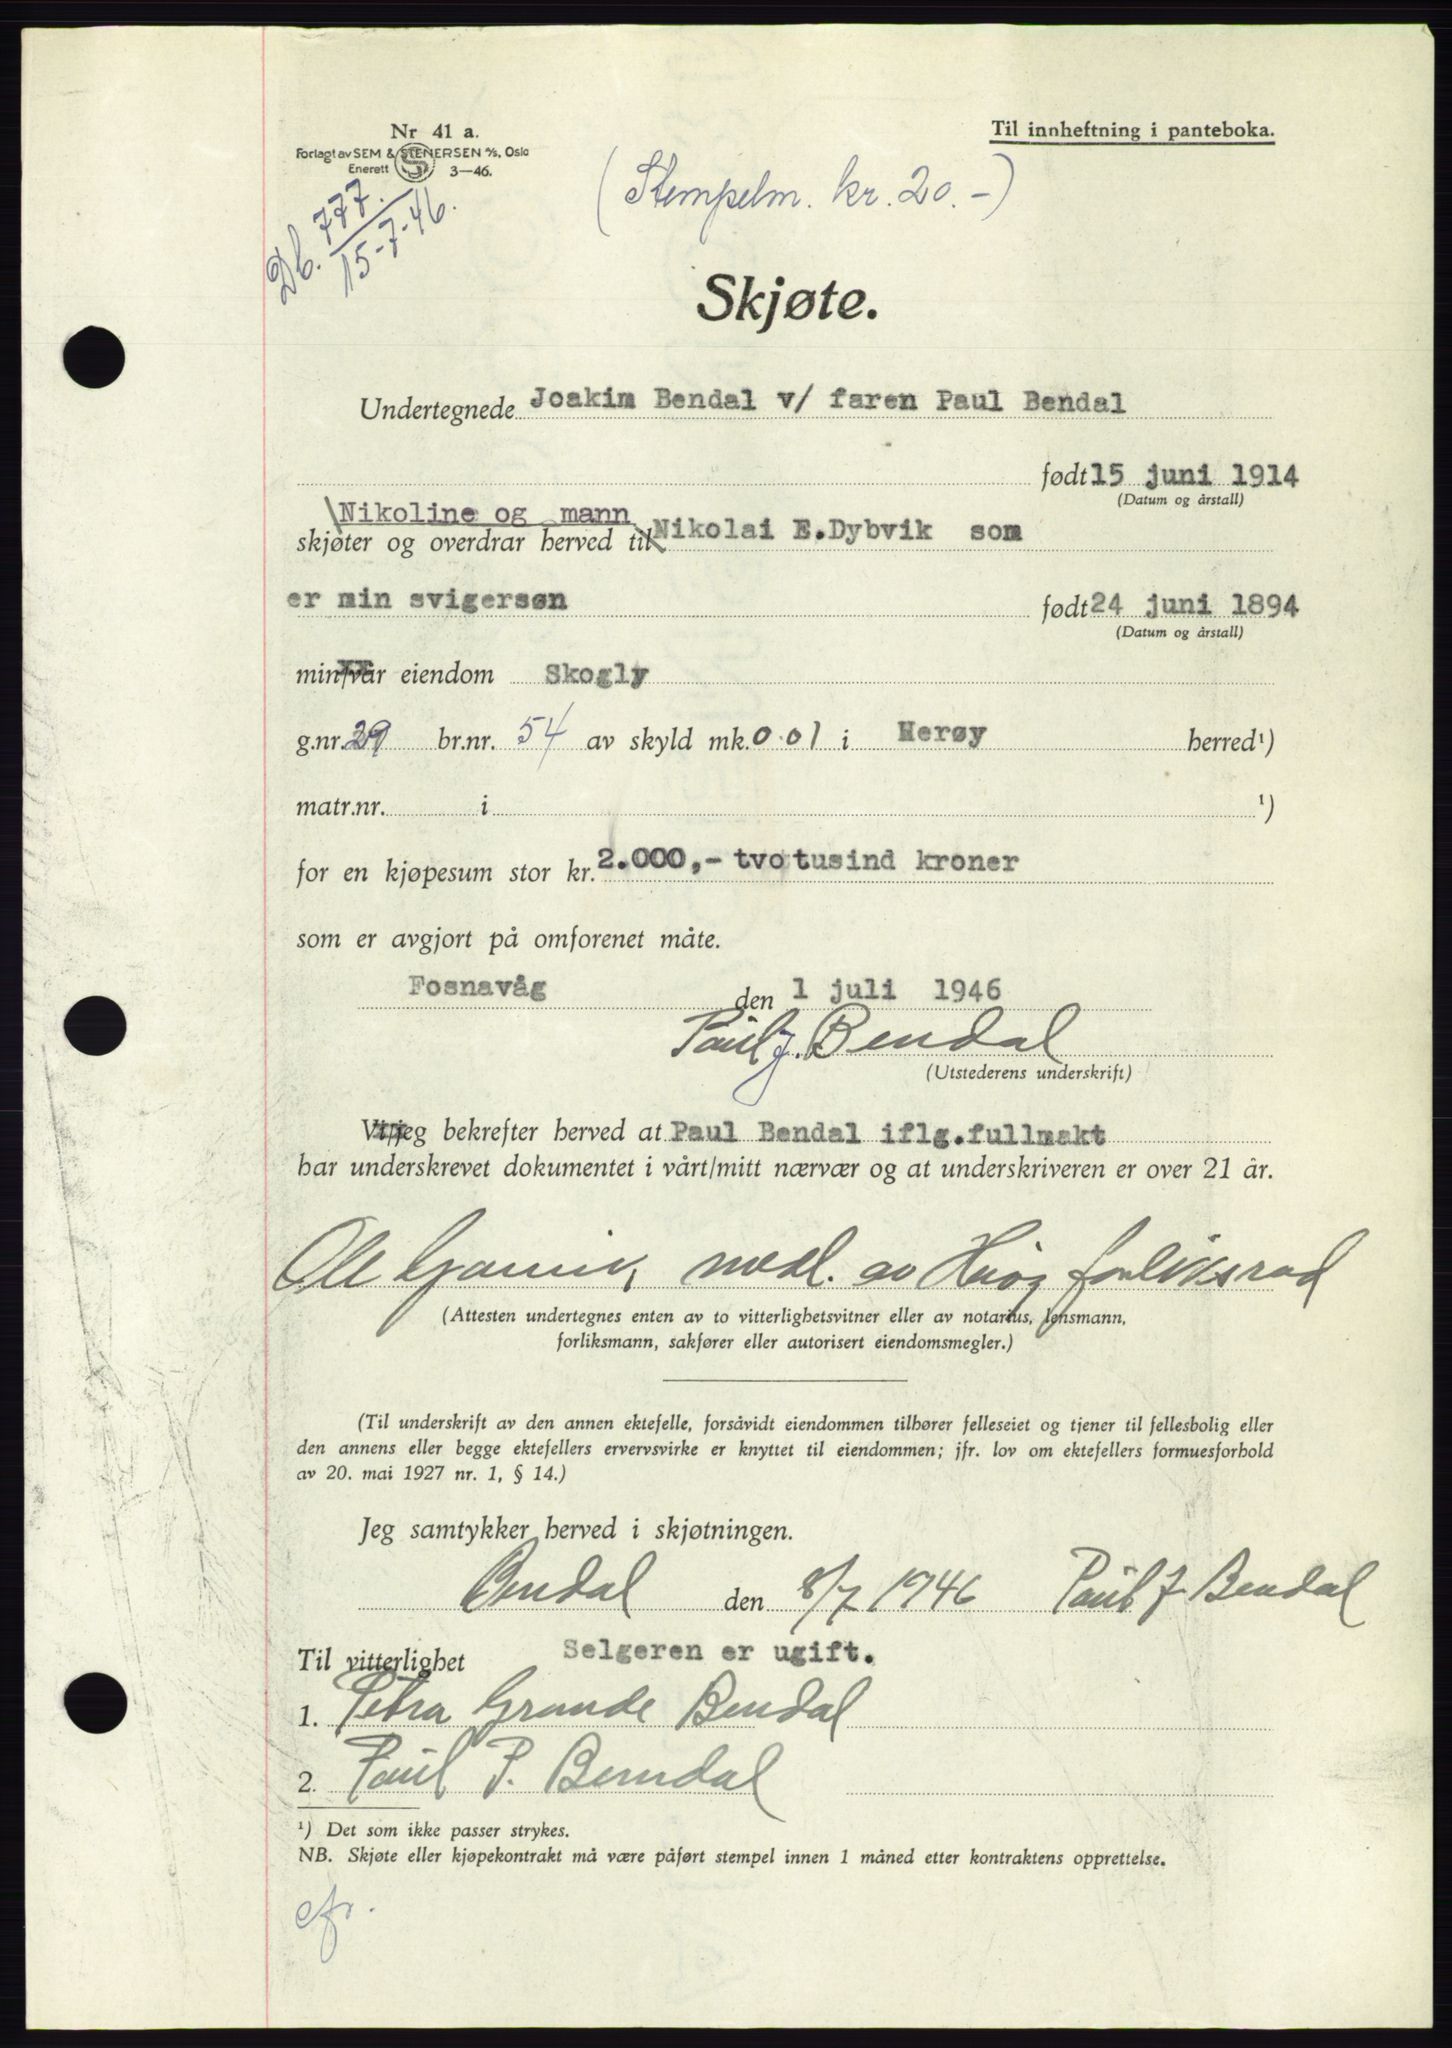 Nr 41 a.
Forlagt av SEM & STENERSEN A/S, Oslo
Enerett S 3—46.
Til innheftning i panteboka.
(Stempelm. kr. 20.-)
Db. 777.
15-7-46.
Skjøte.
Undertegnede Joakim Bendal v/ faren Paul Bendal
født 15 juni 1914
(Datum og årstall)
Nikoline og mann
skjøter og overdrar herved til Nikolai E.Dybvik som
er min svigersøn født 24 juni 1894
(Datum og årstall)
min/vår eiendom Skogly
g.nr. 29 br.nr. 54 av skyld mk. 0.01 i Herøy herred¹)
matr.nr. i ¹)
for en kjøpesum stor kr. 2.000,- tvotusind kroner
som er avgjort på omforenet måte.
Fosnavåg den 1 juli 1946
Paul J. Bendal
(Utstederens underskrift)
Vi/jeg bekrefter herved at Paul Bendal iflg.fullmakt
har underskrevet dokumentet i vårt/mitt nærvær og at underskriveren er over 21 år.
Ole medl. av Herøy forliksråd
(Attesten undertegnes enten av to vitterlighetsvitner eller av notarius, lensmann,
forliksmann, sakfører eller autorisert eiendomsmegler.)
(Til underskrift av den annen ektefelle, forsåvidt eiendommen tilhører felleseiet og tjener til fellesbolig eller
den annens eller begge ektefellers ervervsvirke er knyttet til eiendommen; jfr. lov om ektefellers formuesforhold
av 20. mai 1927 nr. 1, § 14.)
Jeg samtykker herved i skjøtningen.
Bendal den 8/7 1946 Paul J. Bendal
Til vitterlighet Selgeren er ugift.
1. Petra Grande Bendal
2. Paul P. Bendal
¹) Det som ikke passer strykes.
NB. Skjøte eller kjøpekontrakt må være påført stempel innen 1 måned etter kontraktens opprettelse.